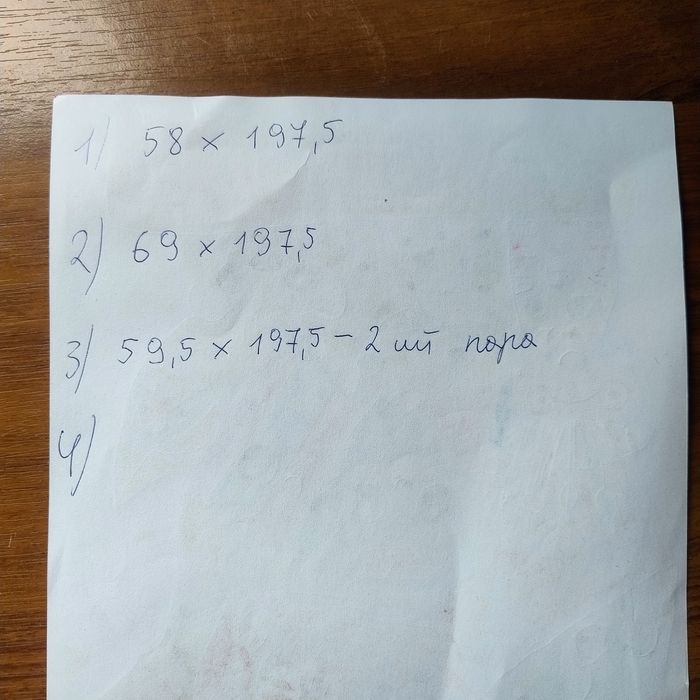 1) 58 x 197,5
2) 69 x 197,5
3) 59,5 x 197,5 - 2 шт пара
4)